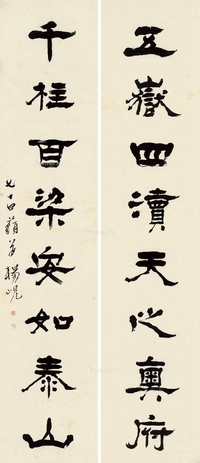 五嶽四瀆天之奧府
千柱百梁安如泰山
七十四藐翁楊峴